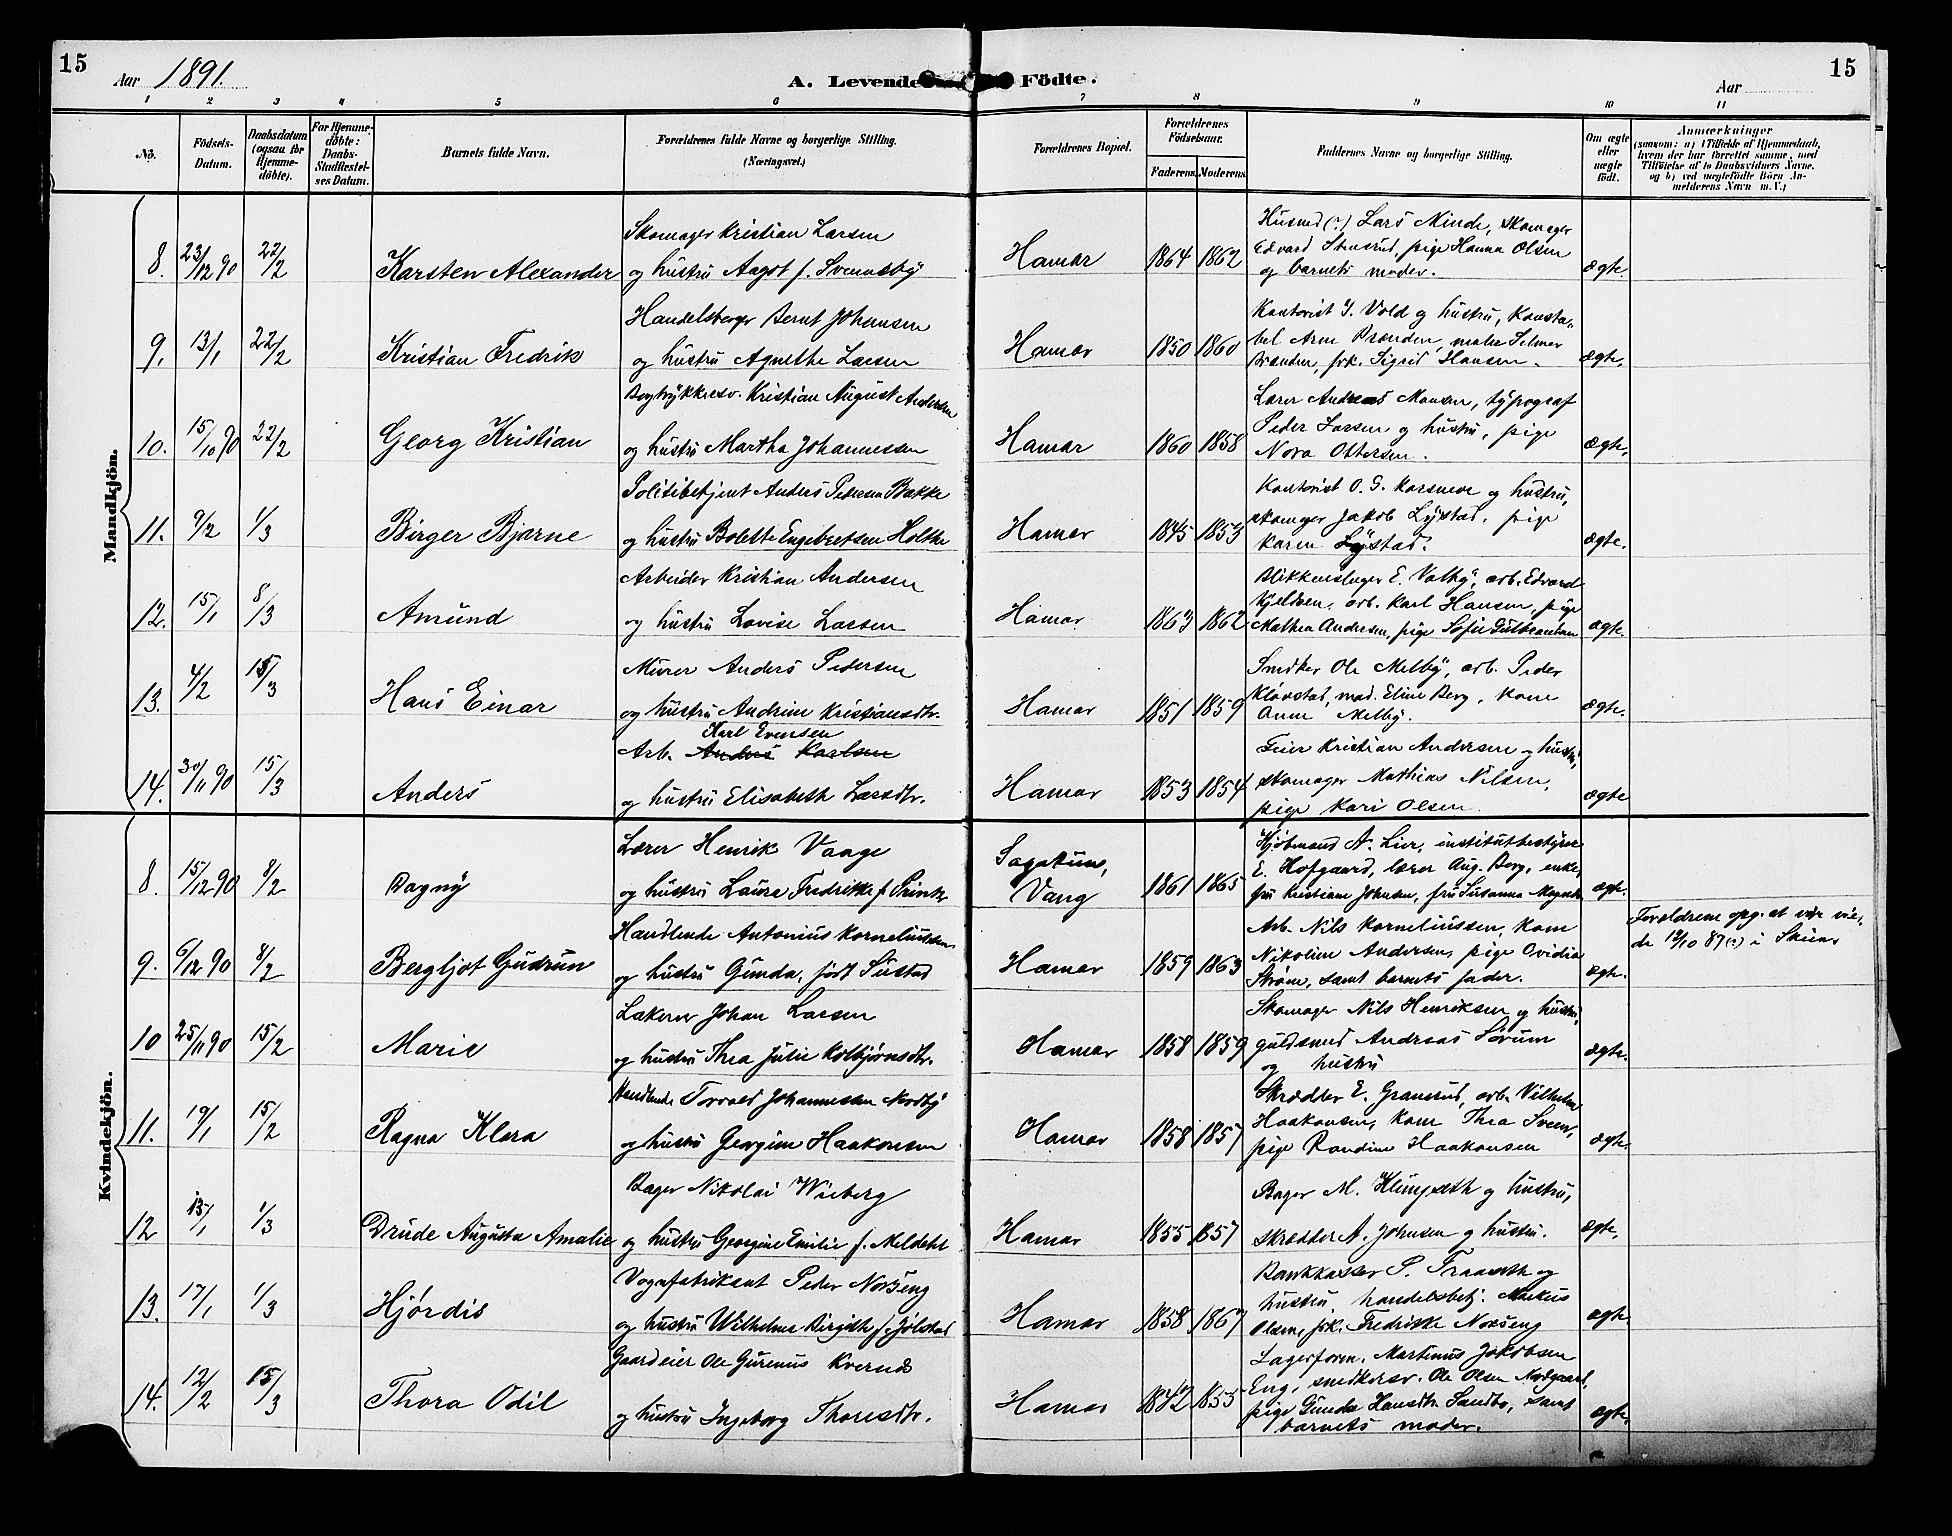 15
Aar 1891.
A. Levende Fødte.
Aar
15
1 2 3 4 5 6 7 8 9 10 11
No.
Fødsels-Datum.
Daabsdatum (ogsaa for Hjemmedøbte).
For Hjemmedøbte: Daabs-Stadfæstelses Datum.
Barnets fulde Navn.
Forældrenes fulde Navne og borgerlige Stilling. (Næringsvei.)
Forældrenes Bopæl.
Forældrenes Fødselsaar.
Faderens. Moderens.
Faddernes Navne og borgerlige Stilling.
Om ægte eller uægte født.
Anmærkninger
(saasom: a) i Tilfælde af Hjemmedaab, hvem der har forrettet samme, med Tilføielse af to Daabsvidners Navne, og b) ved uægtefødte Börn Anmelderens Navn m. V.)
Mandkjön.
8. 23/12 90 22/2 Karsten Alexander
Skomager Kristian Larsen
og hustru Aagot f. Svennsby
Hamar 1864 1862
Husmd (?) Lars Minde, skomager
Edvard Stensrud, pige Hanna Olsen
og barnets moder.
ægte.
9. 13/1 22/2 Kristian Fredrik
Handelsborger Bernt Johansen
og hustru Agnethe Larsen
Hamar 1850 1860
Kontorist I. Vold og hustru, Konsta-
bel Arne Brænden, maler Selmer
Brænden, frk. Sigrid Hansen.
ægte.
10. 15/10 90 22/2 Georg Kristian
Bogtrykkersv. Kristian August Andersen
og hustru Martha Johannessen
Hamar 1860 1858
Lærer Andreas Monsen, typograf
Peder Larsen og hustru, pige
Nora Ottersen.
ægte.
11. 9/2 1/3 Birger Bjarne
Politibetjent Anders Pedersen Bakke
og hustru Bolette Engebretsen Holthe
Hamar 1845 1853
Kontorist O. G. Korsneve og hustru,
skomager Jakob Lystad, pige
Karen Lystad.
ægte.
12. 15/1 8/3 Amund
Arbeider Kristian Andersen
og hustru Lovise Larsen
Hamar 1863 1862
Blikkenslager E. Valby, arb. Edvard
Kjeldsen, arb. Karl Hansen, pige
Mathea Andersen, pige Sofie Gulbrandsen
ægte.
13. 4/2 15/3 Hans Einar
Murer Anders Pedersen
og hustru Andrine Kristiansdtr.
Hamar 1851 1859
Snedker Ole Melby, arb. Peder
Kløvstad, mad. Eline Berg, kone
Anne Melby.
ægte.
14. 30/11 90 15/3 Anders
Karl Evensen
Arb. Anders Karlsen
og hustru Elisabeth Larsdtr.
Hamar 1853 1854
Feier Kristian Andersen og hustru,
skomager Mathias Nilsen,
pige Kari Olsen.
ægte
Kvindekjön.
8. 15/12 90 8/2 Dagny
Lærer Henrik Vaage
og hustru Laura Fredrikke f.
Sagatun,
Vang 1861 1865
Kjøbmand A. Lier, institutbestyrer
E. Hofgaard, lærer Aug. Berg, enke-
fru Kristiane Johnsen, fru Susanna
ægte.
9. 6/12 90 8/2 Bergljot Gudrun
Handlende Antonius Korneliussen
og hustru Gunda, født Sustad
Hamar 1859 1863
Arb. Nils Korneliussen, kone
Nikoline Andersen, pige Ovidia
Strøm, samt barnets fader.
ægte.
Forældrene opg. at være vie-
de 19/10 87 (?) i Skien
10 25/11 90 15/2 Marie
Lakerer Johan Larsen
og hustru Thea Julie Kolbjørnsdtr.
Hamar 1858 1859
Skomager Nils Henriksen og hustru,
guldsmed Andreas Sørum
og hustru
ægte.
11. 19/1 15/2 Ragna Klara
Handlende Torvald Johannessen Nordby
og hustru Georgine Haakonsen
Hamar 1858 1857
Skrædder E. Granerud, arb. Vilhelm
Haakonsen, kone Thea Svens,
pige Randine Haakonsen
ægte.
12 13/1 1/3 Drude Augusta Amalie
Bager Nikolai Wiberg
og hustru Georgine Emilie f. Meldahl
Hamar 1855 1857
Bager M. Klimpæth og hustru,
skrædder A. Johnsen og hustru.
ægte.
13. 17/1 1/3 Hjørdis
Vognfabrikant Peder Nordseng
og hustru Wilhelmine Birgithe f. Jølstad
Hamar 1858 1867
Bankkasser P. Traaseth og
hustru, handelsbetj.
Olsen, frk. Fredrikke Nordseng
ægte.
14. 12/2 15/3 Thora Odil
Gaardeier Ole Gurenius Kvernes
og hustru Ingeborg Thoresdtr.
Hamar 1842 1855
Lagerform. Martinus Jakobsen
Eng, snedkersv. Ole Olsen Nordgaard,
pige Gunda Hansdtr. Sandbo, samt
barnets moder.
ægte.